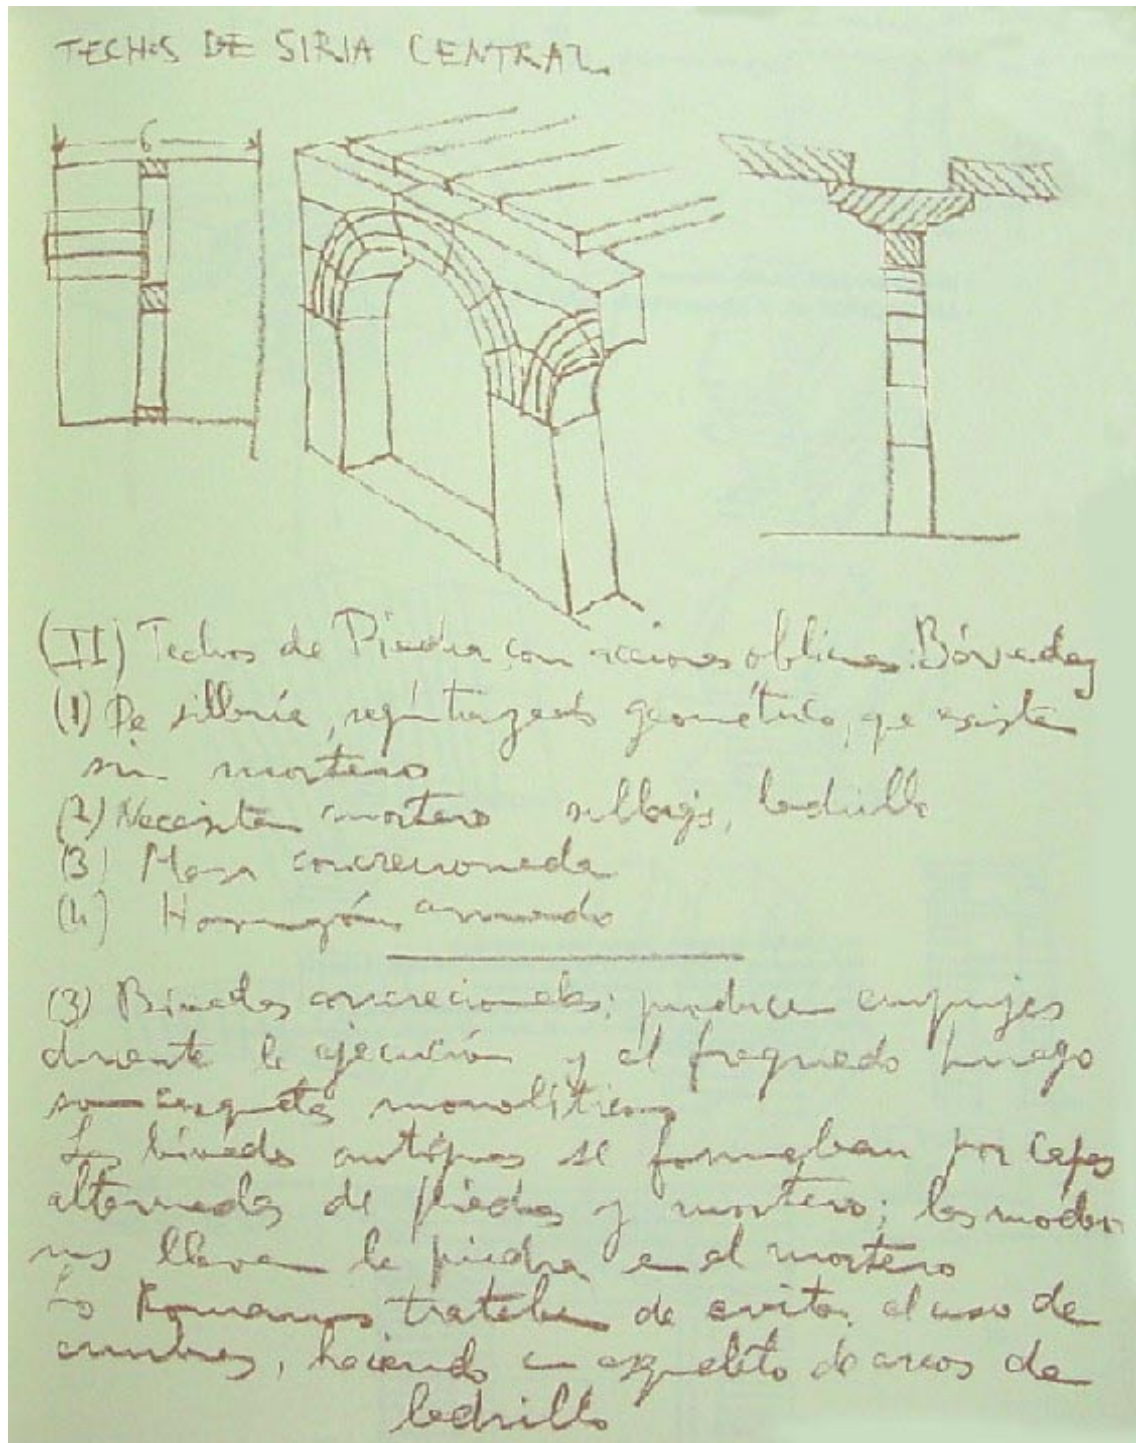 TECHOS DE SIRIA CENTRAL
6
(II) Techos de Piedra con acciones oblicuas. Bóvedas
(1) De sillería, según trazado geométrico, que existen
sin mortero
(2) Necesitan mortero sillarejo, ladrillo
(3) Masa concrecionada
(4) Hormigón armado
(3) Bóvedas concrecionales: producen empujes
durante la ejecución y el fraguado luego
son casquetes monolíticos
Las bóvedas antiguas se formaban por capas
alternadas de piedras y mortero; las moder
nas llevan la piedra en el mortero
Los Romanos trataban de evitar el uso de
cimbras, haciendo un esqueleto de arcos de
ladrillo